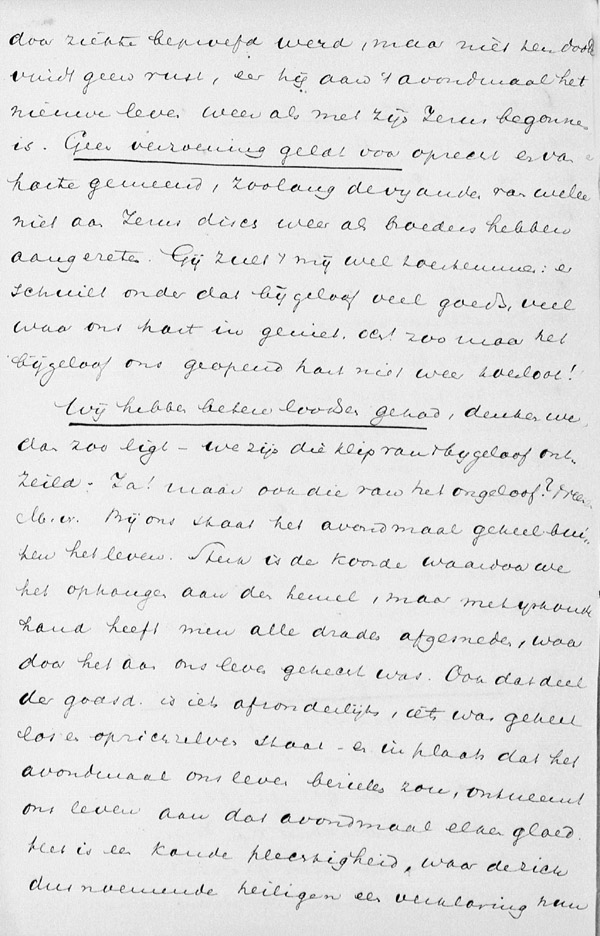 door ziekte beproefd werd, maar niet ten doode
vindt geen rust, eer hij aan 't avondmaal het
nieuwe leven weer als met zijn Jezus begonnen
is. Geen verzoening geldt voor oprecht en van
harte gemeend, zoolang de vyanden van weleer
niet aan Jezus disch weer als broeders hebben
aangezeten. Gij zult 't mij wel toestemmen: er
schuilt onder dat bijgeloof veel goeds, veel
waar ons hart in geniet, och! zoo maar het
bijgeloof ons geopend hart niet weer toesloot!
Wij hebben betere loodsen gehad, denken we
dan zoo ligt - we zijn die klip van 't bygeloof ont-
zeild. Ja! maar ook die van het ongeloof?
M. v. Bij ons staat het avondmaal geheel bui-
ten het leven. Sterk is de koorde waardoor we
het ophangen aan den hemel, maar met
hand heeft men alle draden afgesneden, waar
door het aan ons leven gehecht was. Ook dat deel
der godsd. is iets afzonderlijks, iets wat geheel
los en op zichzelven staat - en in plaats dat het
avondmaal ons leven bezielen zou, ontneemt
ons leven aan dat avondmaal elken gloed.
Het is een koude plechtigheid, waar de zich
dus noemende heiligen een verklaring hun